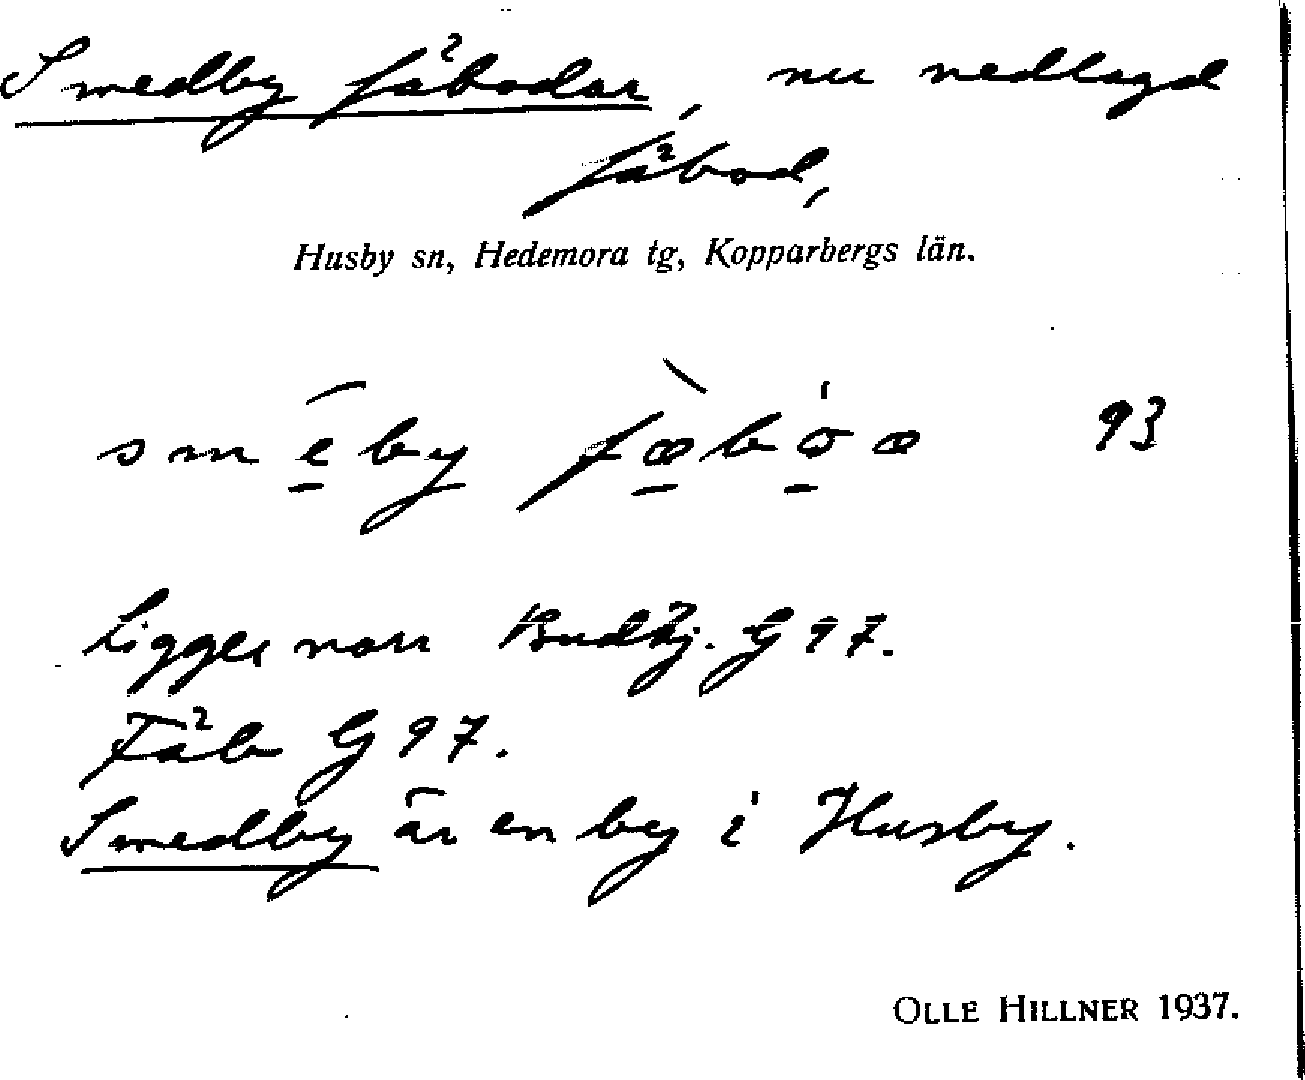 Smedby fäbodar, nu nedlagd
fäbod,
Husby sn, Hedemora tg, Kopparbergs län.
smēby fæ̀bóæ 93
Ligger norr Budkj. G 97.
Fäb G 97.
Smedby är en by i Husby.
OLLE HILLNER 1937.